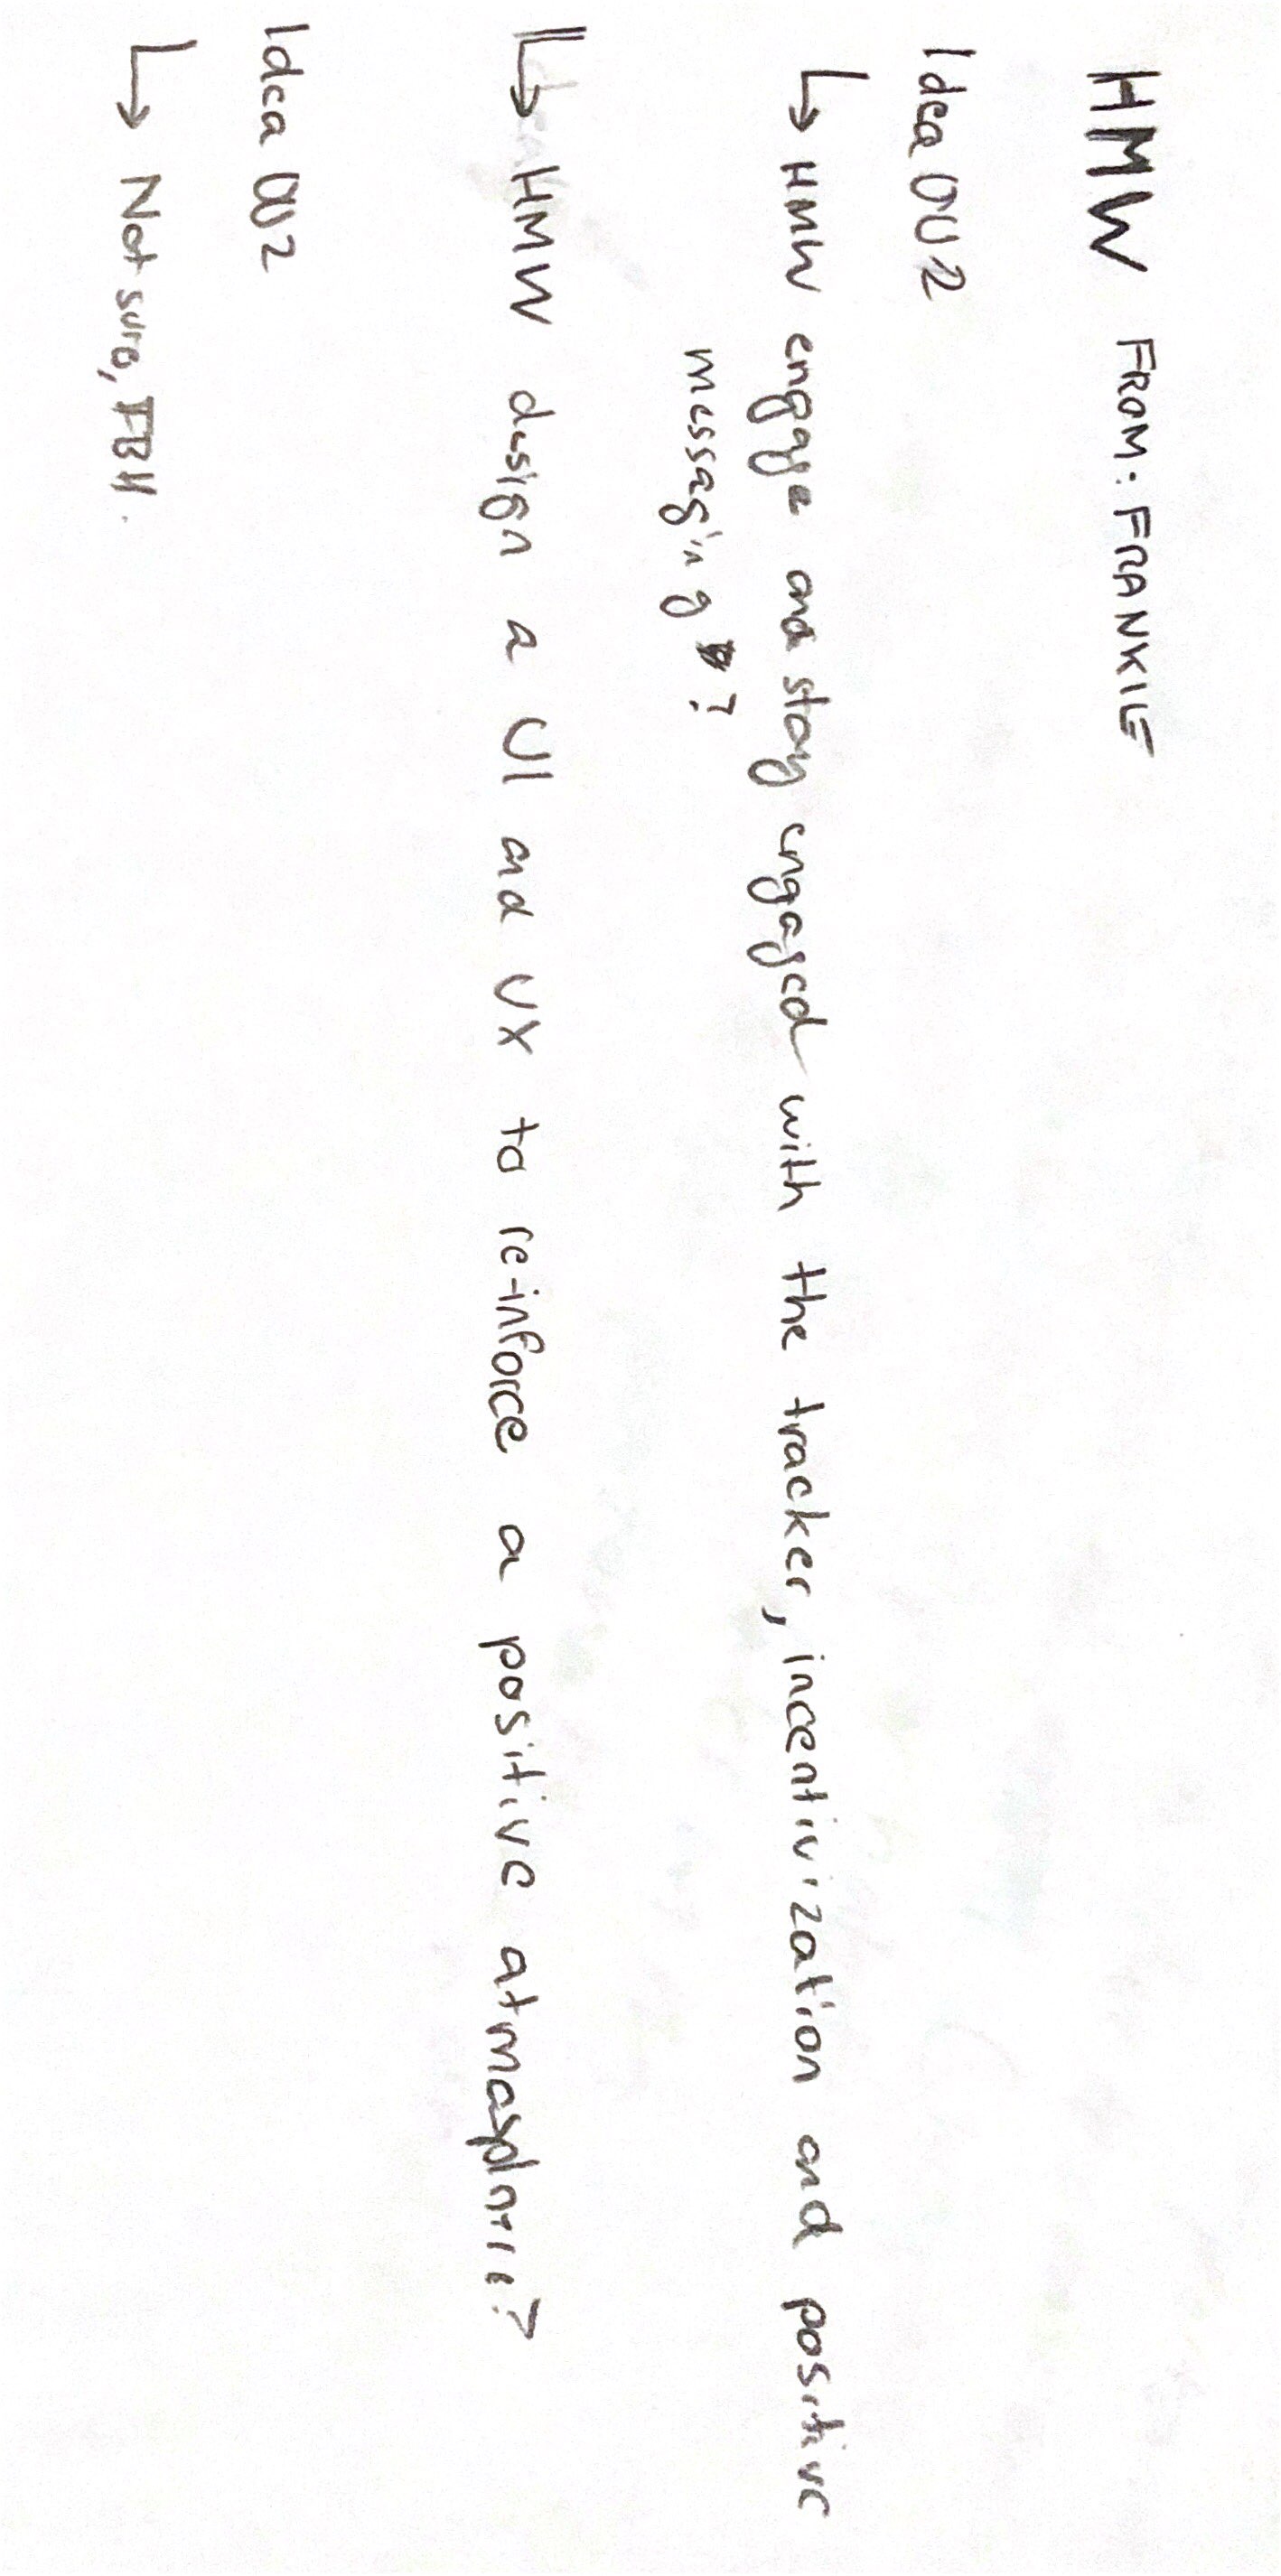 HMW FROM: FRANKIE
Idea 002
↳ HMW engage and stay engaged with the tracker, incentivization and positive
messaging ?
↳ HMW design a UI and UX to re-inforce a positive atmosphere?
Idea 002
↳ Not sure, TBH.